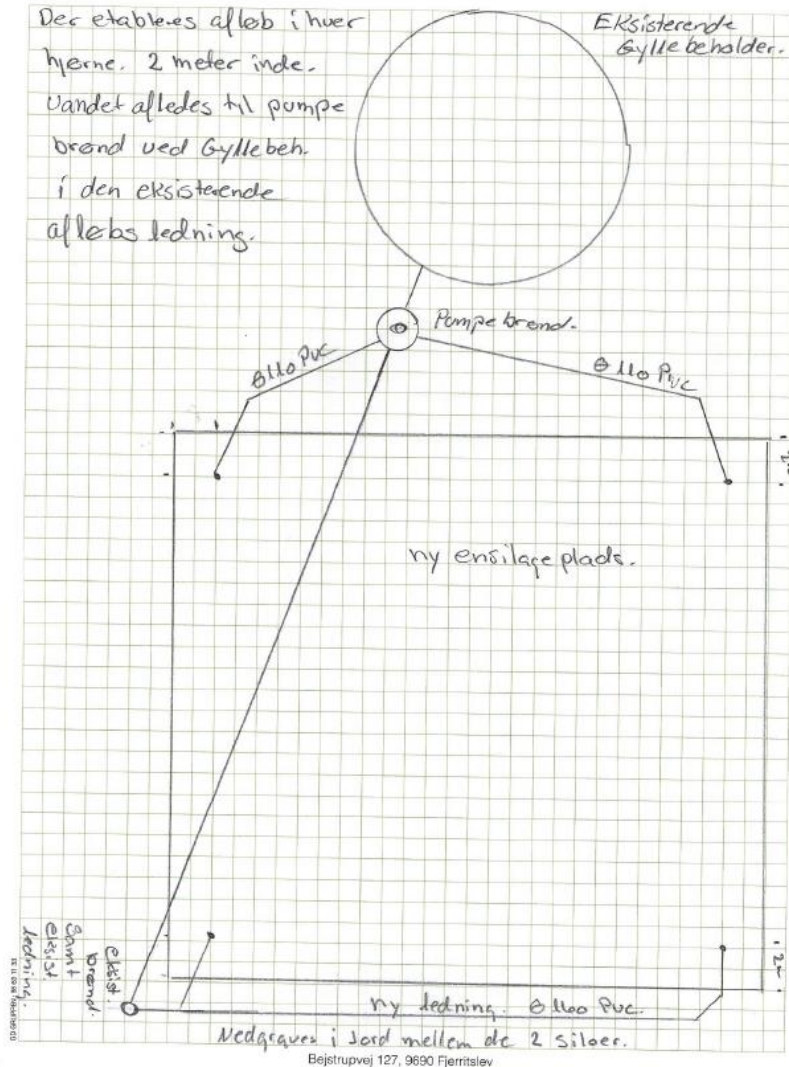 Der etableres afløb i hver
hjørne. 2 meter inde.
Vandet afledes til pumpe
brønd ved Gyllebeh.
i den eksisterende
afløbs ledning.
Eksisterende
Gyllebeholder.
Pumpebrønd.
Ø110 PVC
Ø110 PVC
ny ensilageplads.
eksist.
brønd.
Samt
eksist
ledning.
ny ledning. Ø1100 PVC.
Nedgraves i Jord mellem de 2 siloer.
Bejstrupvej 127, 9690 Fjerritslev